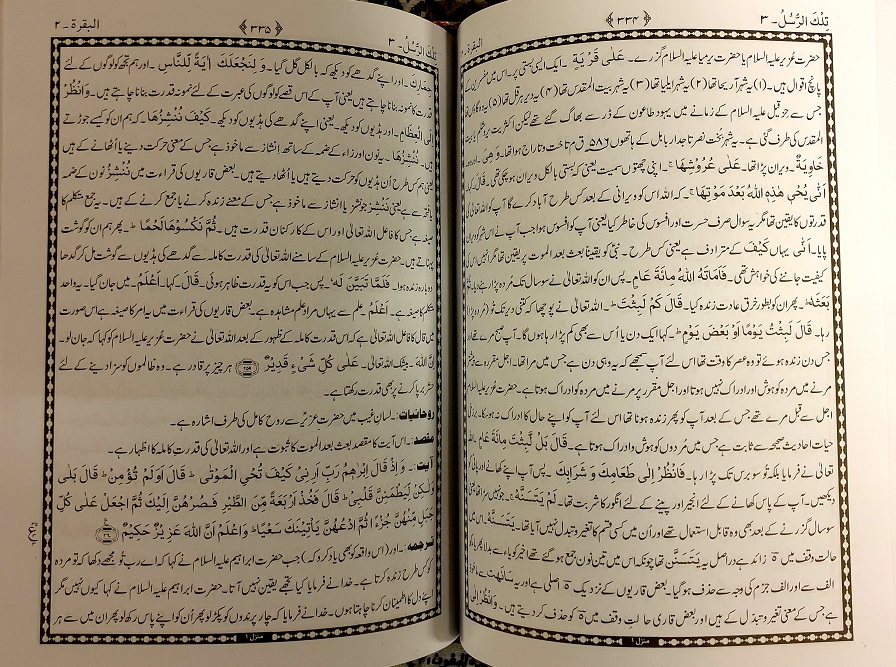 تِلْكَ الرُّسُلُ ـ ٣
﴿ ٣٣٤ ﴾
البقرة ـ ٢
حضرت عزیر علیہ السلام یا حضرت یرمیا علیہ السلام گزرے۔ عَلٰی قَرْیَةٍ ۔ ایک ایسی بستی پر۔ اس میں مفسرین کے
پانچ اقوال ہیں۔ (۱) یہ شہر آریحا تھا (۲) یہ شہر ایلیا تھا (۳) یہ شہر بیت المقدس تھا (۴) یہ دیر ہرقل تھا (۵) یہ وہ گاؤں تھا
جس سے حزقیل علیہ السلام کے زمانے میں یہود طاعون کے ڈر سے بھاگ گئے تھے لیکن اکثریت یروشلم یا بیت
المقدس کی طرف گئی ہے۔ یہ شہر بخت نصر تاجدار بابل کے ہاتھوں ۵۸۶ ق م تاخت و تاراج ہوا تھا۔ وَھِیَ
خَاوِیَةٌ ۔ ویران پڑا تھا۔ عَلٰی عُرُوْشِهَا ۔ اپنی چھتوں سمیت یعنی کہ بستی بالکل ویران ہو چکی تھی۔ قَالَ
اَنّٰی یُحْیٖ هٰذِهِ اللّٰهُ بَعْدَ مَوْتِهَا ۔ کہ اللہ اس کو ویرانی کے بعد کس طرح آباد کرے گا آپ کو اللہ تعالیٰ کی
قدرتوں کا یقین تھا مگر یہ سوال صرف حسرت اور افسوس کی خاطر کیا یعنی آپ کو افسوس ہوا جب آپ نے اس شہر کو ویران
پایا۔ اَنّٰی یہاں کَیْفَ کے مترادف ہے یعنی کس طرح ۔ نبی کو یقیناً بعث بعد الموت پر یقین تھا مگر انہیں اس کی
کیفیت جاننے کی خواہش تھی۔ فَاَمَاتَهُ اللّٰهُ مِائَةَ عَامٍ ۔ پس ان کو اللہ تعالیٰ نے سو سال تک مردہ
بَعَثَهٗ ۔ پھر ان کو بطور خرق عادت زندہ کیا۔ قَالَ کَمْ لَبِثْتَ ۔ اللہ تعالیٰ نے پوچھا کہ کتنی دیر تک تو (مردہ) پڑا
رہا۔ قَالَ لَبِثْتُ یَوْمًا اَوْ بَعْضَ یَوْمٍ ۔ کہا ایک دن یا اُس سے بھی کم پڑا رہا ہوں گا۔ آپ صبح مرے تھے اور
جس دن زندہ ہوئے تو وہ عصر کا وقت تھا اس لئے آپ سمجھے کہ یہ وہی دن ہے جس میں مرا تھا۔ اجل مقررہ سے پہلے
مرنے میں مردہ کو ہوش اور ادراک نہیں ہوتا اور اجل مقرر پر مرنے میں مردہ کو ادراک ہوتا ہے۔ حضرت عزیر علیہ السلام
اجل سے قبل مرے تھے جس کے بعد آپ کو پھر زندہ ہونا تھا اس لئے آپ کو اپنے حال کا ادراک نہ ہو سکا۔ برزخی
حیات احادیث صحیحہ سے ثابت ہے جس میں مُردوں کو ہوش و ادراک ہوتا ہے۔ قَالَ بَلْ لَّبِثْتَ مِائَةَ عَامٍ ۔ اللہ
تعالیٰ نے فرمایا بلکہ تُو سو برس تک پڑا رہا۔ فَانْظُرْ اِلٰی طَعَامِكَ وَ شَرَابِكَ ۔ پس آپ اپنے کھانے اور پانی کو
دیکھیں۔ آپ کے پاس کھانے کے لئے انجیر اور پینے کے لئے انگور کا شربت تھا۔ لَمْ یَتَسَنَّهْ ۔
سو سال گزرنے کے بعد بھی وہ قابل استعمال تھے اور اُن میں کسی قسم کا تغیر و تبدل نہیں آیا تھا۔ یَتَسَنَّهْ
حالت وقف میں ۃ زائد ہے دراصل یہ یَتَسَنَّنَ تھا چونکہ اس میں تین نون جمع ہو گئے تھے اخیر کو یاء سے بدلا پھر یاء کو
الف سے اور الف جزم کی وجہ سے حذف ہو گیا۔ بعض قاریوں کے نزدیک ۃ اصلی ہے اور یہ سَانَهَتْ سے ماخوذ
ہے جس کے معنی تغیر و تبدل کے ہیں اور بعض قاری حالت وقف میں ۃ کو حذف کر دیتے ہیں۔ وَانْظُرْ اِلٰی
منزل ۱
البقرة ـ ٢
﴿ ٣٣٥ ﴾
تِلْكَ الرُّسُلُ ـ ٣
حِمَارِكَ ۔ اور اپنے گدھے کو دیکھ کہ بالکل گل گیا۔ وَ لِنَجْعَلَكَ اٰیَةً لِّلنَّاسِ ۔ اور ہم تجھ کو لوگوں کے لئے
قدرت کا نمونہ بنانا چاہتے ہیں یعنی آپ کے اس قصے کو لوگوں کی عبرت کے لئے نمونہ قدرت بنانا چاہتے ہیں۔ وَانْظُرْ
اِلَی الْعِظَامِ ۔ اور ہڈیوں کو دیکھ۔ یعنی اپنے گدھے کی ہڈیوں کو دیکھ۔ کَیْفَ نُنْشِزُهَا ۔ کہ ہم ان کو کیسے جوڑتے
ہیں۔ نُنْشِزُهَا ۔ یہ نون اور زاء کے ضمہ کے ساتھ انشاز سے ماخوذ ہے جس کے معنی حرکت دینے یا اُٹھانے کے ہیں
یعنی ہم کس طرح اُن ہڈیوں کو حرکت دیتے ہیں یا اُٹھا دیتے ہیں۔ بعض قاریوں کی قراءت میں نُنْشِزُ نون کے ضمہ
یا فتحہ سے ہے یعنی نَنْشِز جو نشز یا انشاز سے ماخوذ ہے جس کے معنی زندہ کرنے یا جمع کرنے کے ہیں۔ یہ جمع متکلم کا
صیغہ ہے جس کا فاعل اللہ تعالیٰ اور اس کے کارکنان قدرت ہیں۔ ثُمَّ نَکْسُوْهَا لَحْمًا ۔ پھر ہم ان کو گوشت
پہناتے ہیں۔ حضرت عزیر علیہ السلام کے سامنے اللہ تعالیٰ کی قدرت کاملہ سے گدھے کی ہڈیوں سے گوشت مل کر گدھا
دوبارہ زندہ ہوا۔ فَلَمَّا تَبَیَّنَ لَهٗ ۔ پس جب اس کو یہ قدرت ظاہر ہوئی۔ قَالَ ۔ کہا۔ اَعْلَمُ ۔ میں جان گیا۔ یہ واحد
متکلم کا صیغہ ہے۔ اَعْلَمُ ۔ علم سے یہاں مراد علم مشاہدہ ہے۔ بعض قاریوں کی قراءت میں یہ امر کا صیغہ ہے اس صورت
میں قال کا فاعل اللہ تعالیٰ ہے کہ اس قدرت کاملہ کے ظہور کے بعد اللہ تعالیٰ نے حضرت عزیر علیہ السلام کو کہا کہ جان لو۔
اَنَّ اللّٰهَ ۔ بیشک اللہ تعالیٰ۔ عَلٰی کُلِّ شَیْءٍ قَدِیْرٌ ﴿۲۵۹﴾ ہر چیز پر قادر ہے۔ وہ ظالموں کو سزا دینے کے لئے
حشر برپا کرنے پر بھی قدرت رکھتا ہے۔
روحانیات: لسان غیب میں حضرت عزیرؑ سے روح کامل کی طرف اشارہ ہے۔
مقصد: اس آیت کا مقصد بعث بعد الموت کا ثبوت ہے اور اللہ تعالیٰ کی قدرت کاملہ کا اظہار ہے۔
آیت: وَ اِذْ قَالَ اِبْرٰهٖمُ رَبِّ اَرِنِیْ کَیْفَ تُحْیِ الْمَوْتٰی ؕ قَالَ اَوَلَمْ تُؤْمِنْ ؕ قَالَ بَلٰی
وَلٰکِنْ لِّیَطْمَئِنَّ قَلْبِیْ ؕ قَالَ فَخُذْ اَرْبَعَةً مِّنَ الطَّیْرِ فَصُرْهُنَّ اِلَیْكَ ثُمَّ اجْعَلْ عَلٰی کُلِّ
جَبَلٍ مِّنْهُنَّ جُزْءًا ثُمَّ ادْعُهُنَّ یَاْتِیْنَكَ سَعْیًا ؕ وَاعْلَمْ اَنَّ اللّٰهَ عَزِیْزٌ حَکِیْمٌ ﴿۲۶۰﴾
ترجمہ: اور (اس واقعہ کو بھی یاد کرو کہ) جب حضرت ابراہیم علیہ السلام نے کہا کہ اے رب تُو مجھے دکھا کہ تو مردہ
کو کس طرح زندہ کرتا ہے۔ خدا نے فرمایا کیا تجھے یقین نہیں آتا۔ حضرت ابراہیم علیہ السلام نے کہا کیوں نہیں مگر
اپنے دل کا اطمینان کرنا چاہتا ہوں۔ خدا نے فرمایا کہ چار پرندوں کو پکڑ لو پھر اُن کو اپنے پاس رکھ لو پھر ان میں سے ہر
منزل ۱